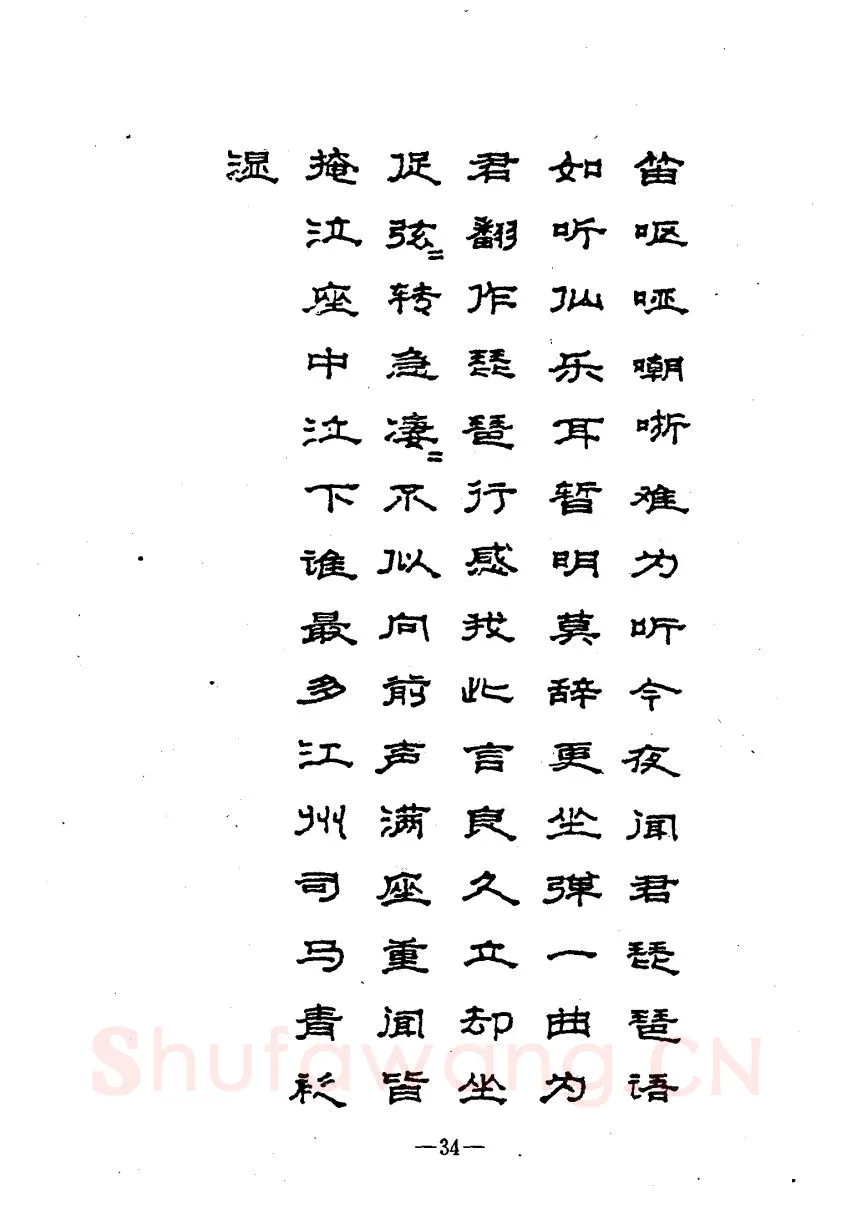 笛呕哑嘲哳难为听今夜闻君琵琶语
如听仙乐耳暂明莫辞更坐弹一曲为
君翻作琵琶行感我此言良久立却坐
促弦〻转急凄〻不似向前声满座重闻皆
掩泣座中泣下谁最多江州司马青衫
湿
—34—
Shufawang.CN